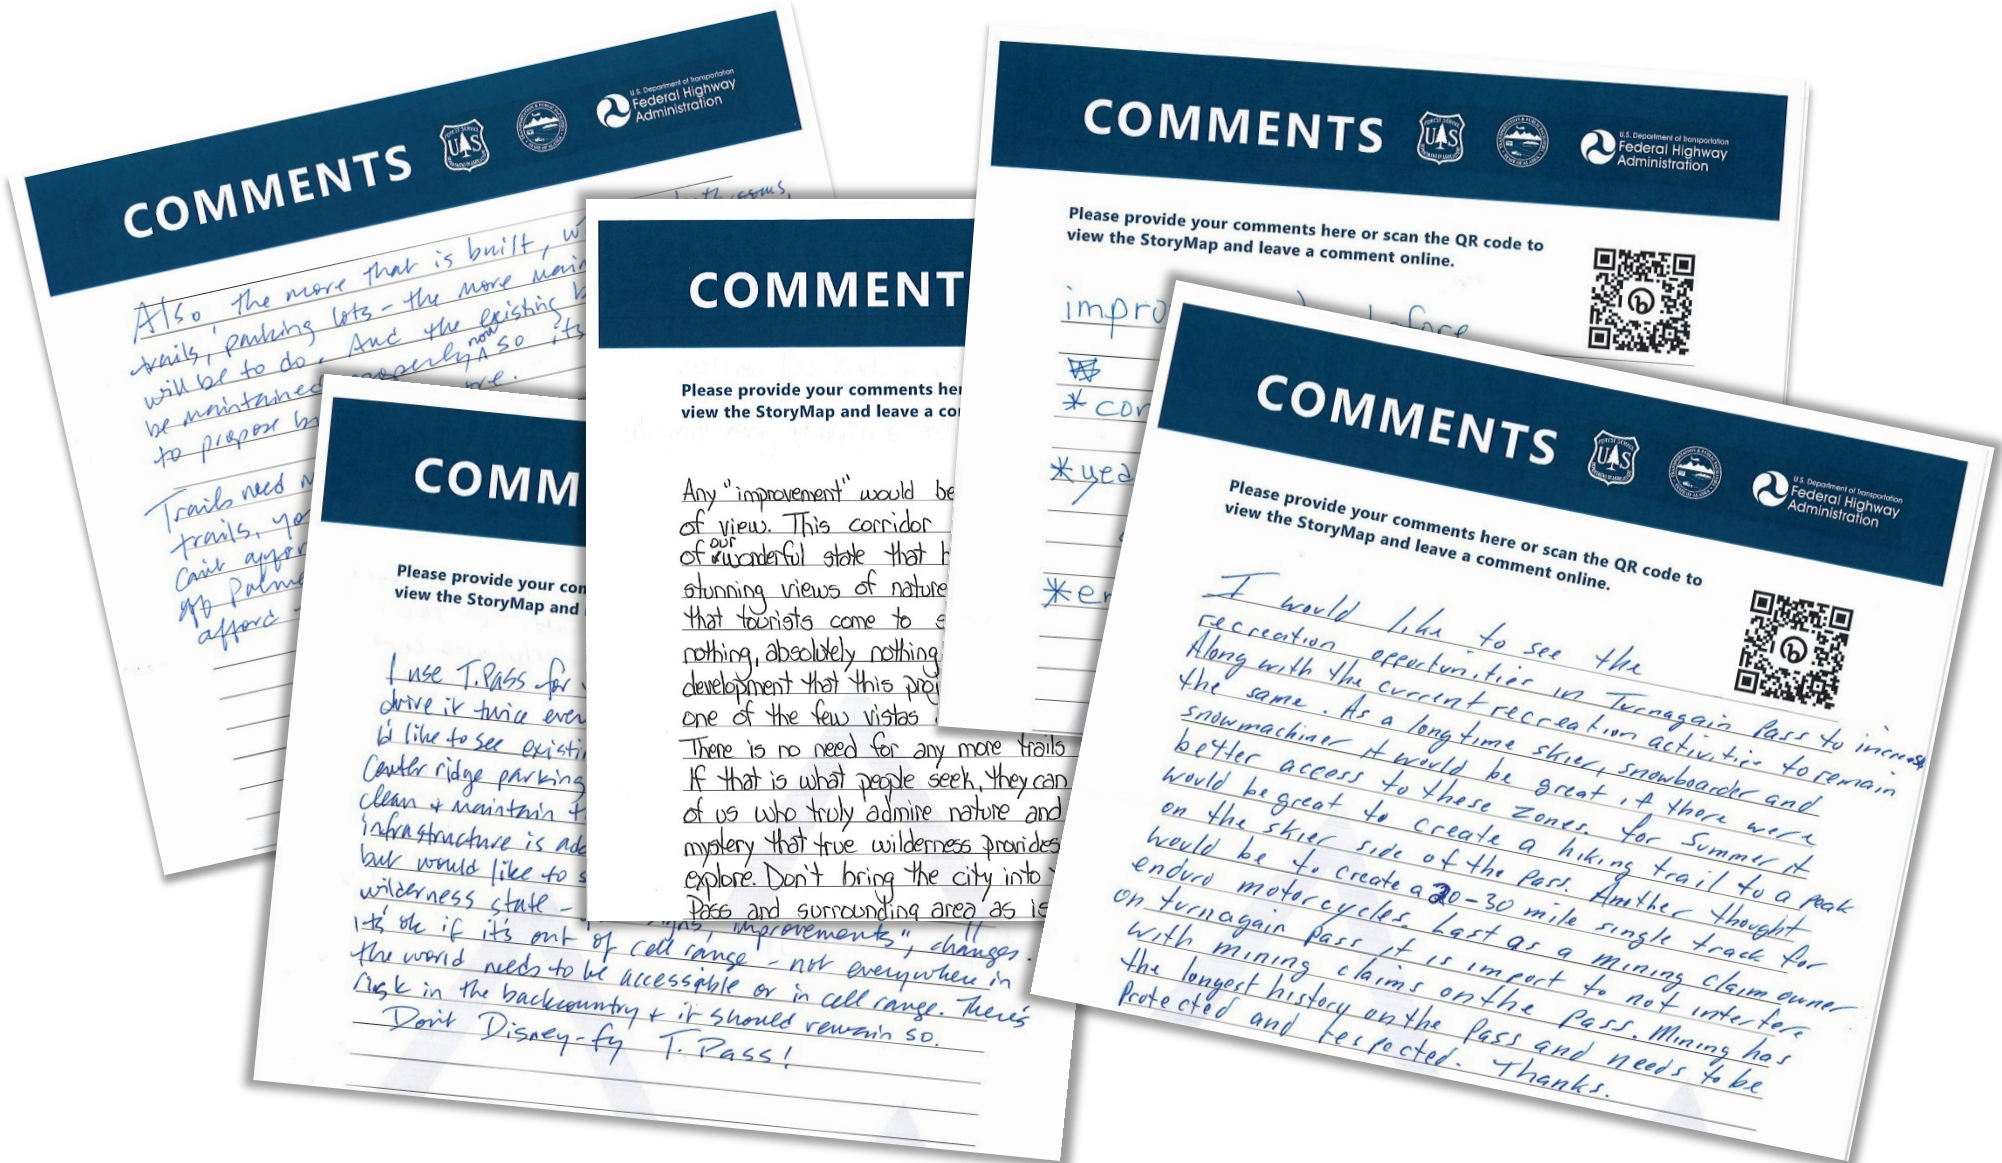 COMMENTS
U.S. Department of Transportation
Federal Highway
Administration
Also, the more that is built,
trails, parking lots - the more
will be to do. And the existing
be maintained properly now so its
to propose
Trails need
trails,
can't
off
afford
COMM
Please provide your com
view the StoryMap and
I use T.Pass for
drive it twice
I'd like to see
Center ridge parking
clean + maintain
infrastructure is
but would like to
wilderness state -
improvements", changes.
It's ok if it's out of cell range - not everywhere in
the world needs to be accessible or in cell range. There's
risk in the backcountry + it should remain so.
Don't Disney-fy T. Pass!
COMMENT
Please provide your comments her
view the StoryMap and leave a co
Any "improvement" would be
of view. This corridor
of our wonderful state that
stunning views of nature
that tourists come to
nothing, absolutely nothing
development that this
one of the few vistas
There is no need for any more trails
If that is what people seek, they can
of us who truly admire nature and
mystery that true wilderness provides
explore. Don't bring the city into
Pass and surrounding area as is
COMMENTS
U.S. Department of Transportation
Federal Highway
Administration
Please provide your comments here or scan the QR code to
view the StoryMap and leave a comment online.
impro before
* cor
* yea
* en
COMMENTS
U.S. Department of Transportation
Federal Highway
Administration
Please provide your comments here or scan the QR code to
view the StoryMap and leave a comment online.
I would like to see the
recreation opportunities in Turnagain Pass to increase
Along with the current recreation activities to remain
the same. As a long time skier, snowboarder and
snowmachiner it would be great if there were
better access to these zones. for summer it
would be great to create a hiking trail to a peak
on the skier side of the Pass. Another thought
would be to create a 20-30 mile single track for
enduro motorcycles. Last as a mining claim owner
on turnagain pass it is import to not interfere
with mining claims on the pass. Mining has
the longest history on the pass and needs to be
Protected and respected. Thanks.